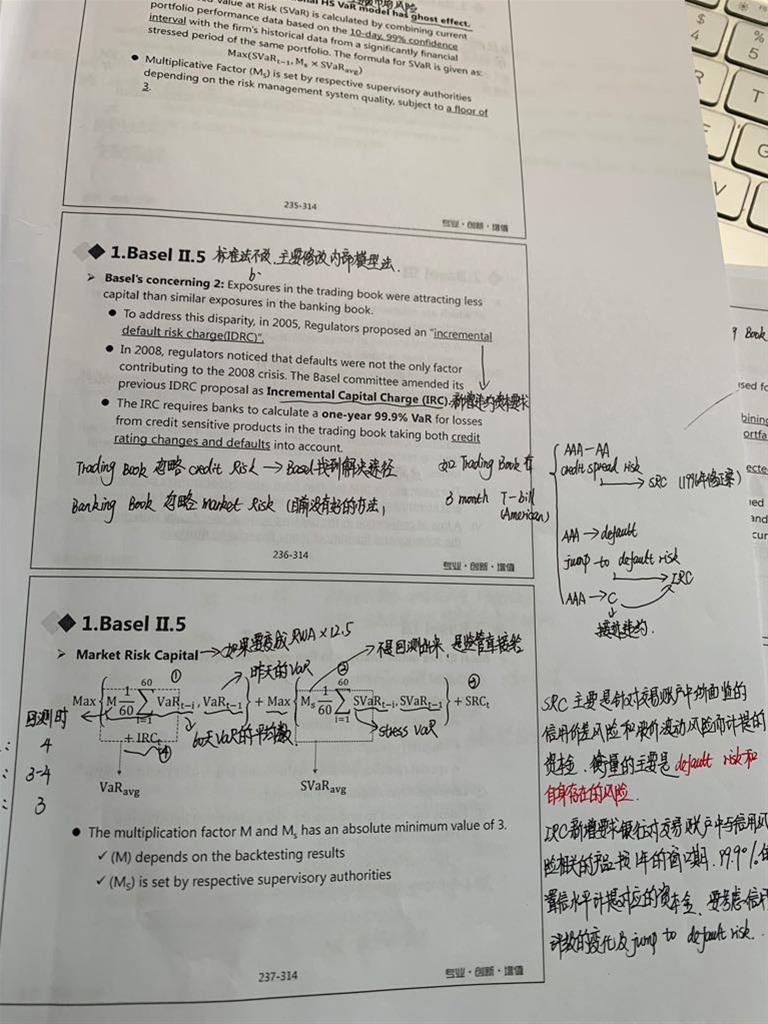 HS VaR model has ghost effect.
Value at Risk (SVaR) is calculated by combining current
portfolio performance data based on the 10-day, 99% confidence
interval with the firm's historical data from a significantly financial
stressed period of the same portfolio. The formula for SVaR is given as:
Max(SVaRt−1, Ms × SVaRavg)
● Multiplicative Factor (Ms) is set by respective supervisory authorities
depending on the risk management system quality, subject to a floor of
3.
235-314
专业·创新·增值
1.Basel II.5 标准法不改,主要修改内部模型法.
➢ Basel's concerning 2: Exposures in the trading book were attracting less
capital than similar exposures in the banking book.
● To address this disparity, in 2005, Regulators proposed an "incremental
default risk charge(IDRC)".
● In 2008, regulators noticed that defaults were not the only factor
contributing to the 2008 crisis. The Basel committee amended its
previous IDRC proposal as Incremental Capital Charge (IRC). 新增违约资本要求
● The IRC requires banks to calculate a one-year 99.9% VaR for losses
from credit sensitive products in the trading book taking both credit
rating changes and defaults into account.
Trading Book 忽略 credit Risk → Basel找到解决途径
Banking Book 忽略 market Risk (目前没有好的方法)
如 Trading Book 有
3 month T-bill
(American)
AAA-AA
credit spread risk
→ SRC (1996年修正案)
AAA → default
jump to default risk
→ IRC
AAA → C
接近违约.
236-314
专业·创新·增值
1.Basel II.5
➢ Market Risk Capital → 如果要变成RWA×12.5
昨天的VaR
不是回测出来,是监管直接给
① ② ③
Max { M 1/60 ∑ 60 i=1 VaRt−i, VaRt−1 } + Max { Ms 1/60 ∑ 60 i=1 SVaRt−i, SVaRt−1 } + SRCt
+ IRCt ④
回测时
60天VaR的平均数
stress VaR
4
3-4
3
VaRavg
SVaRavg
● The multiplication factor M and Ms has an absolute minimum value of 3.
✓ (M) depends on the backtesting results
✓ (Ms) is set by respective supervisory authorities
237-314
专业·创新·增值
SRC 主要是针对交易账户中所面临的
信用价差风险和股价波动风险而计提的
资本金. 衡量的主要是 default risk和
自身存在的风险.
IRC新增要求银行对交易账户中与信用风
险相关的产品按1年的窗口期, 99.9%的
置信水平计提对应的资本金, 要考虑信用
评级的变化及jump to default risk.
Book